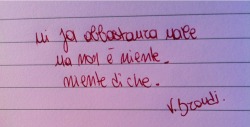 mi fa abbastanza male
ma non è niente.
niente di che.
V. Brondi.